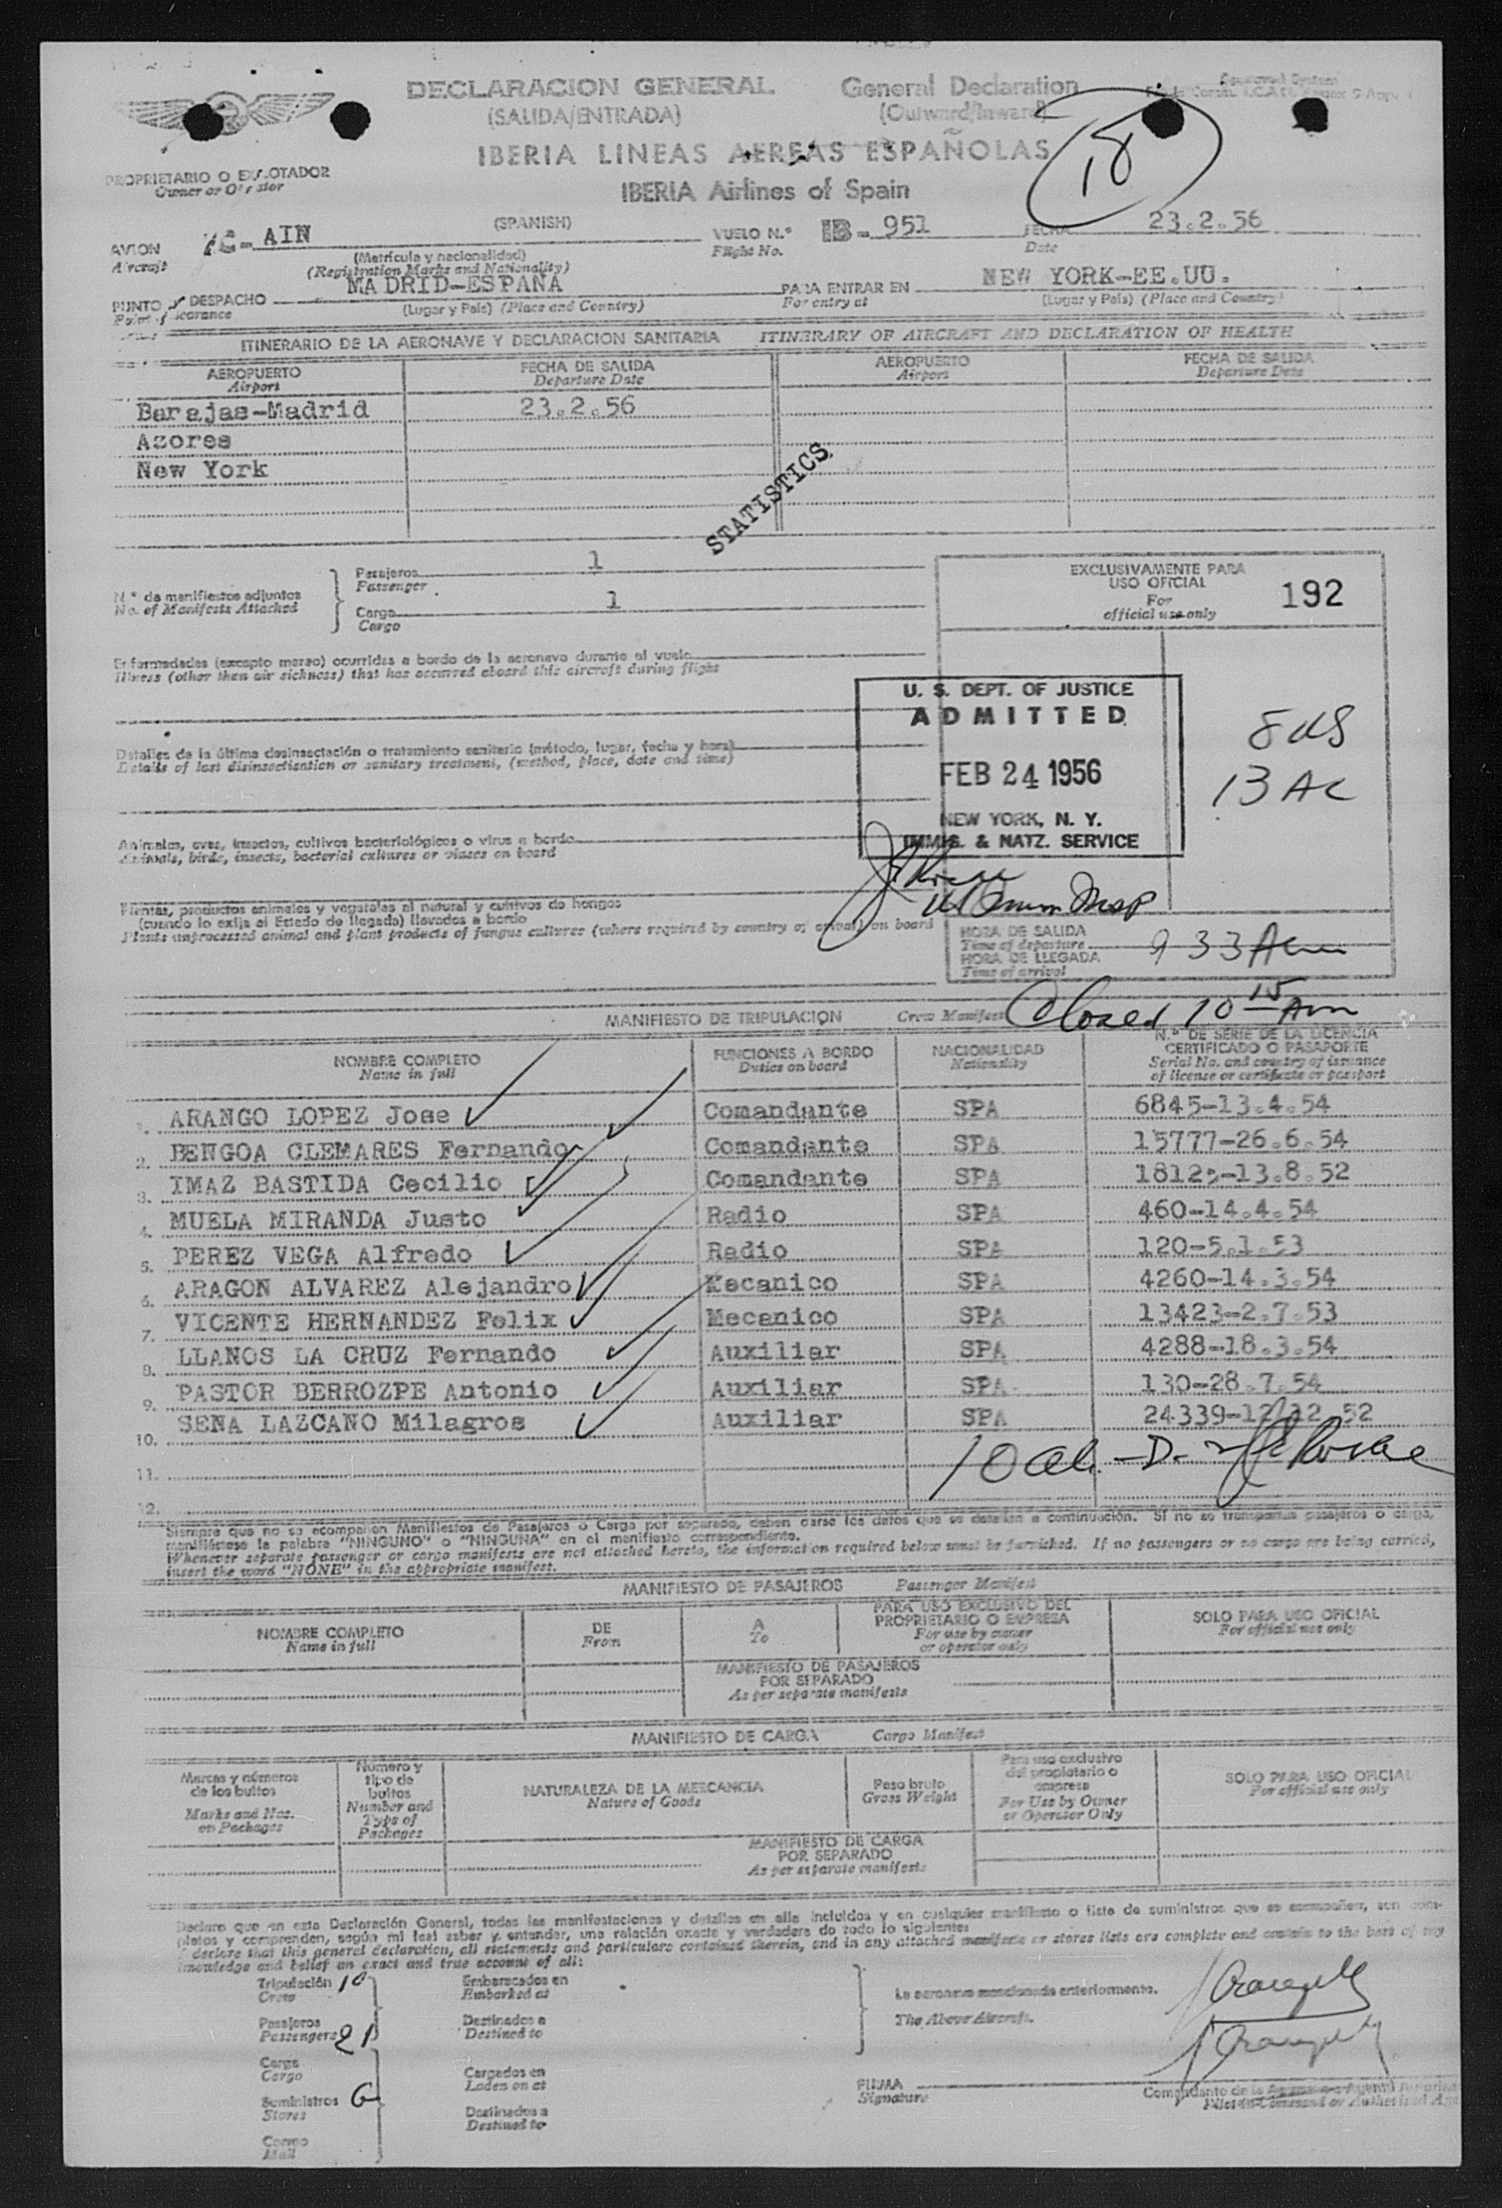 DECLARACION GENERAL General Declaration
(SALIDA/ENTRADA) (Outward/Inward)
18
IBERIA LINEAS AEREAS ESPAÑOLAS
PROPRIETARIO O EXPLOTADOR
Owner or Operator
IBERIA Airlines of Spain
(SPANISH)
AVION AIN VUELO N.º IB- 951 FECHA 23.2.56
Aircraft (Matrícula y nacionalidad) Flight No. Date
(Registration Marks and Nationality)
PUNTO DESPACHO MADRID-ESPAÑA PARA ENTRAR EN NEW YORK-EE.UU.
(Lugar y País) (Place and Country) For entry at (Lugar y País) (Place and Country)
ITINERARIO DE LA AERONAVE Y DECLARACION SANITARIA ITINERARY OF AIRCRAFT AND DECLARATION OF HEALTH
AEROPUERTO FECHA DE SALIDA AEROPUERTO FECHA DE SALIDA
Airport Departure Date Airport Departure Date
Barajas-Madrid 23.2.56
Azores
New York
STATISTICS
N.º de manifiestos adjuntos Pasajeros 1
No. of Manifests Attached Passenger
Carga 1
Cargo
EXCLUSIVAMENTE PARA
USO OFICIAL
For
official use only
192
Enfermedades (excepto mareo) ocurridas a bordo de la aeronave durante el vuelo
Illness (other than air sickness) that has occurred aboard this aircraft during flight
U. S. DEPT. OF JUSTICE
ADMITTED
FEB 24 1956
NEW YORK, N. Y.
IMMIG. & NATZ. SERVICE
8 US
13 AC
Detalles de la última desinsectación o tratamiento sanitario (método, lugar, fecha y hora)
Details of last disinsectisation or sanitary treatment, (method, place, date and time)
Animales, aves, insectos, cultivos bacteriológicos o virus a bordo
Animals, birds, insects, bacterial cultures or viruses on board
Plantas, productos animales y vegetales al natural y cultivos de hongos
(cuando lo exija el Estado de llegada) llevados a bordo
Plants unprocessed animal and plant products of fungus cultures (where required by country of arrival) on board
HORA DE SALIDA
Time of departure 9 33 Am
HORA DE LLEGADA
Time of arrival
Closed 10 15 Am
MANIFIESTO DE TRIPULACION Crew Manifest
NOMBRE COMPLETO FUNCIONES A BORDO NACIONALIDAD N.º DE SERIE DE LA LICENCIA
CERTIFICADO O PASAPORTE
Name in full Duties on board Nationality Serial No. and country of issuance
of license or certificate or passport
1. ARANGO LOPEZ Jose Comandante SPA 6845-13.4.54
2. BENGOA CLEMARES Fernando Comandante SPA 15777-26.6.54
3. IMAZ BASTIDA Cecilio Comandante SPA 18125-13.8.52
4. MUELA MIRANDA Justo Radio SPA 460-14.4.54
5. PEREZ VEGA Alfredo Radio SPA 120-5.1.53
6. ARAGON ALVAREZ Alejandro Mecanico SPA 4260-14.3.54
7. VICENTE HERNANDEZ Felix Mecanico SPA 13423-2.7.53
8. LLANOS LA CRUZ Fernando Auxiliar SPA 4288-18.3.54
9. PASTOR BERROZPE Antonio Auxiliar SPA 130-28.7.54
10. SENA LAZCANO Milagros Auxiliar SPA 24339-12/12.52
11.
12.
Siempre que no se acompañen Manifiestos de Pasajeros o Carga por separado, deben darse los datos que se detallan a continuación. Si no se transportan pasajeros o carga,
manifiéstese la palabra "NINGUNO" o "NINGUNA" en el manifiesto correspondiente.
Whenever separate passenger or cargo manifests are not attached hereto, the information required below must be furnished. If no passengers or no cargo are being carried,
insert the word "NONE" in the appropriate manifest.
MANIFIESTO DE PASAJEROS Passenger Manifest
NOMBRE COMPLETO DE A PARA USO EXCLUSIVO DEL
PROPRIETARIO O EMPRESA SOLO PARA USO OFICIAL
Name in full From To For use by owner
or operator only For official use only
MANIFIESTO DE PASAJEROS
POR SEPARADO
As per separate manifests
MANIFIESTO DE CARGA Cargo Manifest
Marcas y números
de los bultos
Marks and Nos.
on Packages
Número y
tipo de
bultos
Number and
Type of
Packages
NATURALEZA DE LA MERCANCIA
Nature of Goods
Peso bruto
Gross Weight
Para uso exclusivo
del propietario o
empresa
For Use by Owner
or Operator Only
SOLO PARA USO OFICIAL
For official use only
MANIFIESTO DE CARGA
POR SEPARADO
As per separate manifests
Declaro que en esta Declaración General, todas las manifestaciones y detalles en ella incluidos y en cualquier manifiesto o lista de suministros que se acompañen, son com-
pletos y comprenden, según mi leal saber y entender, una relación exacta y verdadera de todo lo siguiente:
I declare that this general declaration, all statements and particulars contained therein, and in any attached manifests or stores lists are complete and contain to the best of my
knowledge and belief an exact and true account of all:
Tripulación 10 Embarcados en
Crew Embarked at
La aeronave mencionada anteriormente.
Pasajeros Destinados a
Passengers 21 Destined to
The Above Aircraft.
Carga Cargados en
Cargo Laden on at
FIRMA
Signature
Comandante de la
Pilot in Command or Authorized
Suministros Destinados a
Stores Destined to
Correo
Mail